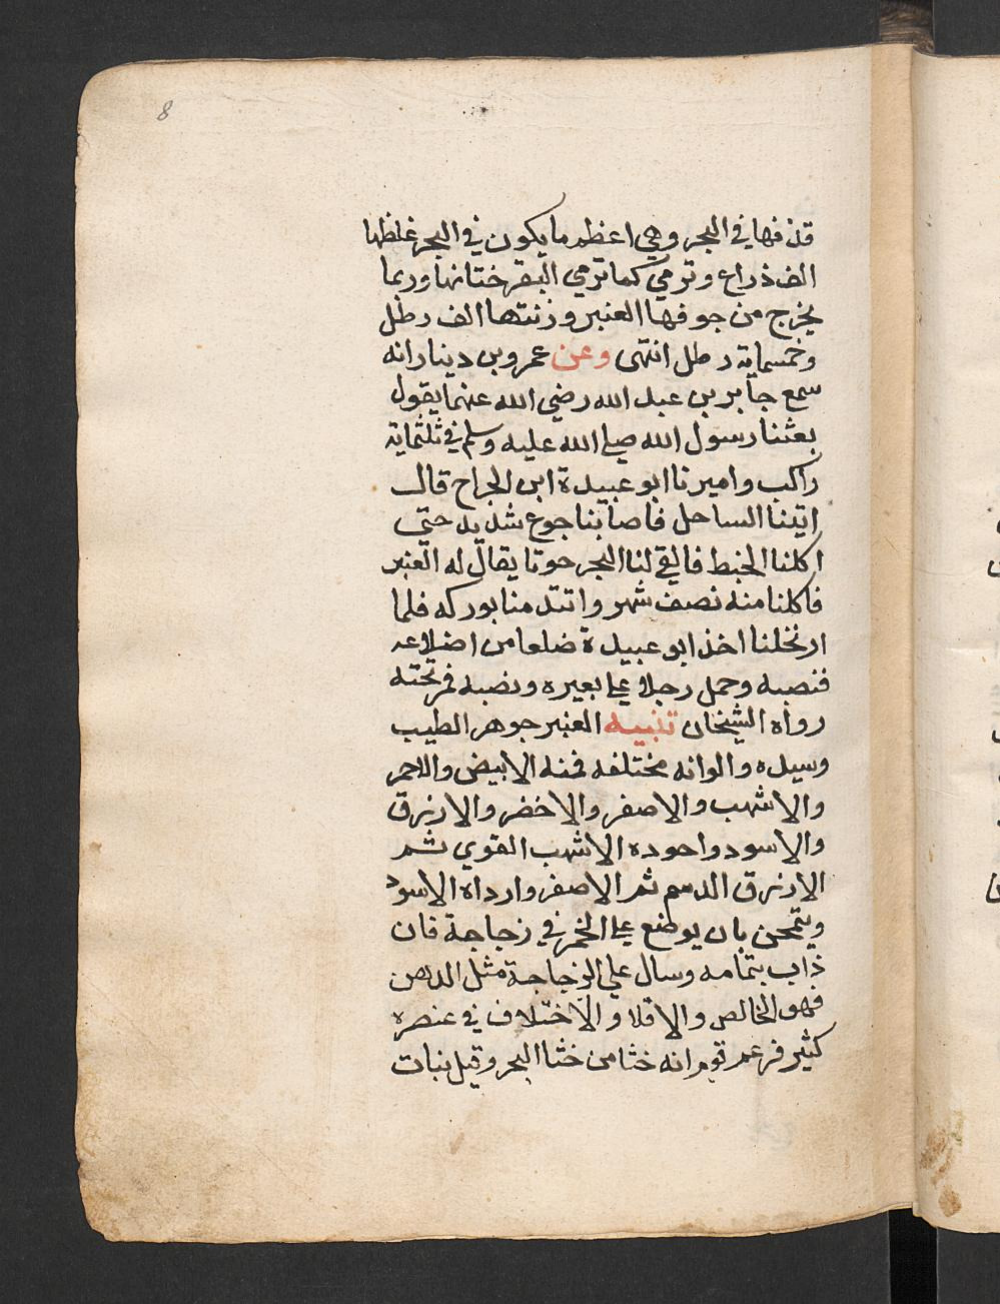 8
قذفها في البحر وهي اعظم ما يكون في البحر غلظها
الف ذراع وترمي كما ترمي البقر ختانها وربما
يخرج من جوفها العنبر وزنتها الف رطل
وخمسماية رطل انتهى وعن عمرو بن دينار انه
سمع جابر بن عبد الله رضي الله عنهما يقول
بعثنا رسول الله صلى الله عليه وسلم في ثلثماية
راكب واميرنا ابو عبيدة ابن الجراح قال
اتينا الساحل فاصابنا جوع شديد حتى
اكلنا الخبط فالقى لنا البحر حوتا يقال له العنبر
فاكلنا منه نصف شهر واتتدمنا بودكه فلما
ارتحلنا اخذ ابو عبيدة ضلعا من اضلاعه
فنصبه وحمل رجلا على بعيره ونصبه فمر تحته
رواه الشيخان تنبيه العنبر جوهر الطيب
وسيده والوانه مختلفه فمنه الابيض والاحمر
والاشهب والاصفر والاخضر والازرق
والاسود واجوده الاشهب القوي ثم
الازرق الدسم ثم الاصفر وارداه الاسود
ويمتحن بان يوضع على الجمر في زجاجة فان
ذاب بتمامه وسال على الزجاجة مثل الدهن
فهو الخالص والا فلا والاختلاف في عنصره
كثير فزعم قوم انه خثا من خثا البحر وقيل نبات